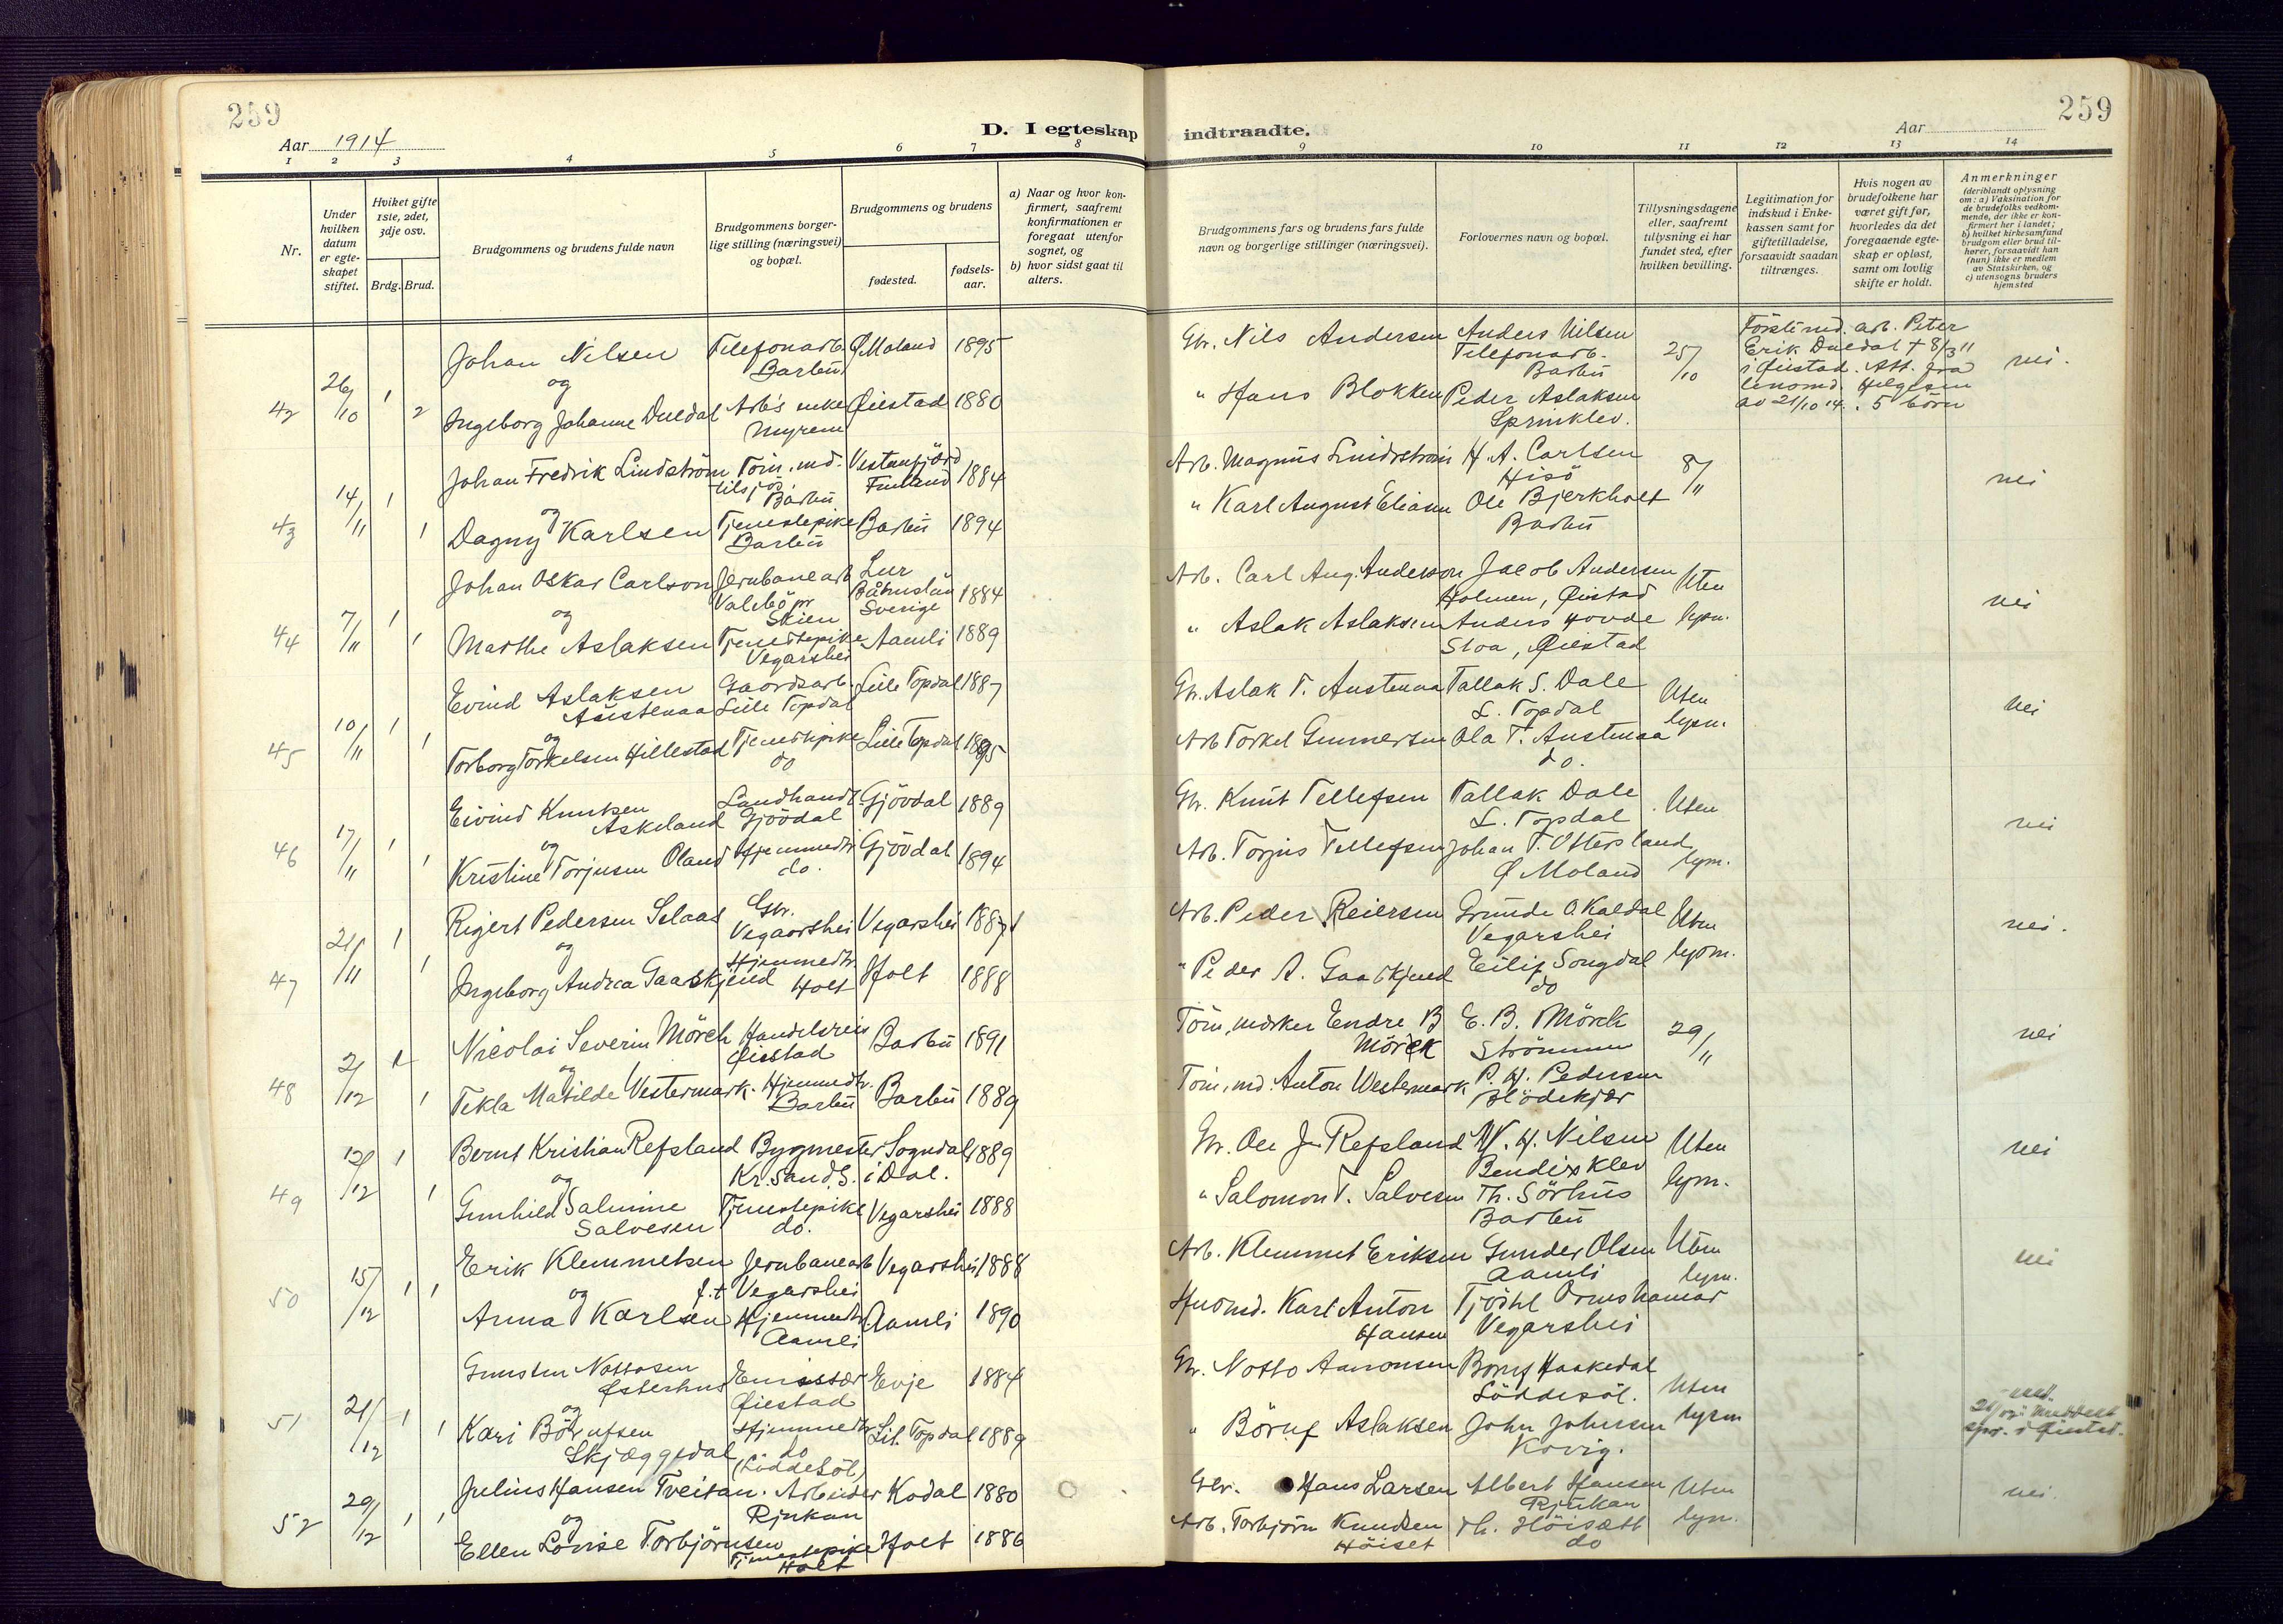 259
Aar 1914
D. I egteskap
indtraadte.
Aar
259
1 2 3 4 5 6 7 8 9 10 11 12 13 14
Nr.
Under hvilken datum er egteskapet stiftet.
Hviket gifte 1ste, 2det, 3dje osv.
Brdg. Brud.
Brudgommens og brudens fulde navn
Brudgommens borgerlige stilling (næringsvei) og bopæl.
Brudgommens og brudens
fødested.
fødselsaar.
a) Naar og hvor konfirmert, saafremt konfirmationen er foregaat utenfor sognet, og
b) hvor sidst gaat til alters.
Brudgommens fars og brudens fars fulde navn og borgerlige stillinger (næringsvei).
Forlovernes navn og bopæl.
Tillysningsdagene eller, saafremt tillysning ei har fundet sted, efter hvilken bevilling.
Legitimation for indskud i Enkekassen samt for giftetilladelse, forsaavidt saadan tiltrænges.
Hvis nogen av brudefolkene har været gift før, hvorledes da det foregaaende egteskap er opløst, samt om lovlig skifte er holdt.
Anmerkninger (deriblandt oplysning om: a) Vaksination for de brudefolks vedkommende, der ikke er konfirmert her i landet; b) hvilket kirkesamfund brudgom eller brud tilhører, forsaavidt han (hun) ikke er medlem av Statskirken, og c) utensogns bruders hjemsted
42 26/10 1 2
Johan Nilsen Telefonarb. Barbu Ø Moland 1895
og
Ingeborg Johanne Duedal Arb's enke Myrene Øiestad 1880
Gbr. Nils Andersen
" Hans Blokken
Anders Nilsen Telefonarb. Barbu
Peder Aslaksen Sprinklev.
25/10
Første md. arb. Peter
Erik Duedal + 8/3 11
i Øiestad. Att. fra
lensmd. Helgesen
av 21/10 14. 5 børn
nei.
43 14/11 1 1
Johan Fredrik Lindström Töm.md. tilsjös Barbu Vestanfjörd Finland 1884
og
Dagny Karlsen Tjenestepike Barbu Barbu 1894
Arb. Magnus Lindström
" Karl August Eliasen
H. A. Carlsen Hisö
Ole Bjerkholt Barbu
8/11
nei
44 7/11 1 1
Johan Oskar Carlson Jernbanearb Valebö pr Skien Lur Båhuslän Sverige 1884
og
Marthe Aslaksen Tjenestepike Vegarshei Aamli 1889
Arb. Carl Aug. Anderson
" Aslak Aslaksen
Jacob Andersen Holmen, Øiestad
Anders Hovde Stoa, Øiestad
Uten lysn.
nei
45 10/11 1 1
Evind Aslaksen Austenaa Gaardsarb. Lille Topdal Lille Topdal 1887
og
Torborg Torkelsen Hillestad Tjenestepike do Lille Topdal 1895
Gbr. Aslak T. Austenaa
Arb Torkel Gunnersen
Tallak S. Dale L. Topdal
Ola T. Austenaa do.
Uten lysn.
nei
46 17/11 1 1
Eivind Knutsen Askeland Landhandl. Gjövdal Gjövdal 1889
og
Kristine Torjusen Oland Hjemmedtr. do. Gjövdal 1894
Gbr. Knut Tellefsen
Arb. Torjus Tellefsen
Tallak Dale L. Topdal
Johan T. Ottersland Ø Moland
Uten lysn.
nei
47 21/11 1 1
Reijert Pedersen Selaas Gbr. Vegaarshei Vegarshei 1887
og
Ingeborg Andrea Gaaskjend Hjemmedtr. Holt Holt 1888
Arb. Peder Reiersen
" Peder A. Gaaskjend
Grunde O. Kaldal Vegarshei
Eilif Songdal do
Uten lysn.
nei.
48 2/12 1 1
Nicolai Severin Mörch Handelsreis Øiestad Barbu 1891
og
Tekla Matilde Vestermark. Hjemmedtr. Barbu Barbu 1889
Töm.mærker Endre B Mörck
Töm.md. Anton Westermark
E. B. Mörck Strömmen
P. H. Pedersen Blödekjær
29/11
nei
49 12/12 1 1
Bernt Kristian Refsland Bygmester Kr.sand. S. Sogndal i Dal. 1889
og
Gunhild Salmine Salvesen Tjenestepike do. Vegarshei 1888
Gbr. Ole J. Refsland
" Salomon T. Salvesen
W. H. Nilsen Bendixklev
Th. Sörhus Barbu
Uten lysn.
nei
50 15/12 1 1
Erik Klemmetsen Jernbanearb f.t. Vegarshei Vegarshei 1888
og
Anna Karlsen Hjemmedtr. Aamli Aamli 1890
Arb. Klemmet Eriksen
Husmd. Karl Anton Hansen
Gunder Olsen Aamli
Tjöstel Ormshamar Vegarshei
Uten lysn.
nei
51 21/12 1 1
Gunsten Nottosen Østerhus Emissær Øiestad Evje 1884
og
Kari Börufsen Skjæggedal Hjemmedtr do (Löddesöl) Lit. Topdal 1889
Gbr. Notto Aanonsen
" Böruf Aslaksen
Böruf Haakedal Löddesöl.
John Johnsen Kovig.
Uten lysn
52 29/12 1 1
Julius Hansen Tveitan. Arbeider Rjukan Kodal 1880
og
Ellen Lovise Torbjörnsen Tjenestepike Holt Holt 1886
Gbr. Hans Larsen
Arb. Torbjörn Knudsen Höiset
Albert Hansen Rjukan
Th. Höisætt do
Uten lysn.
nei.